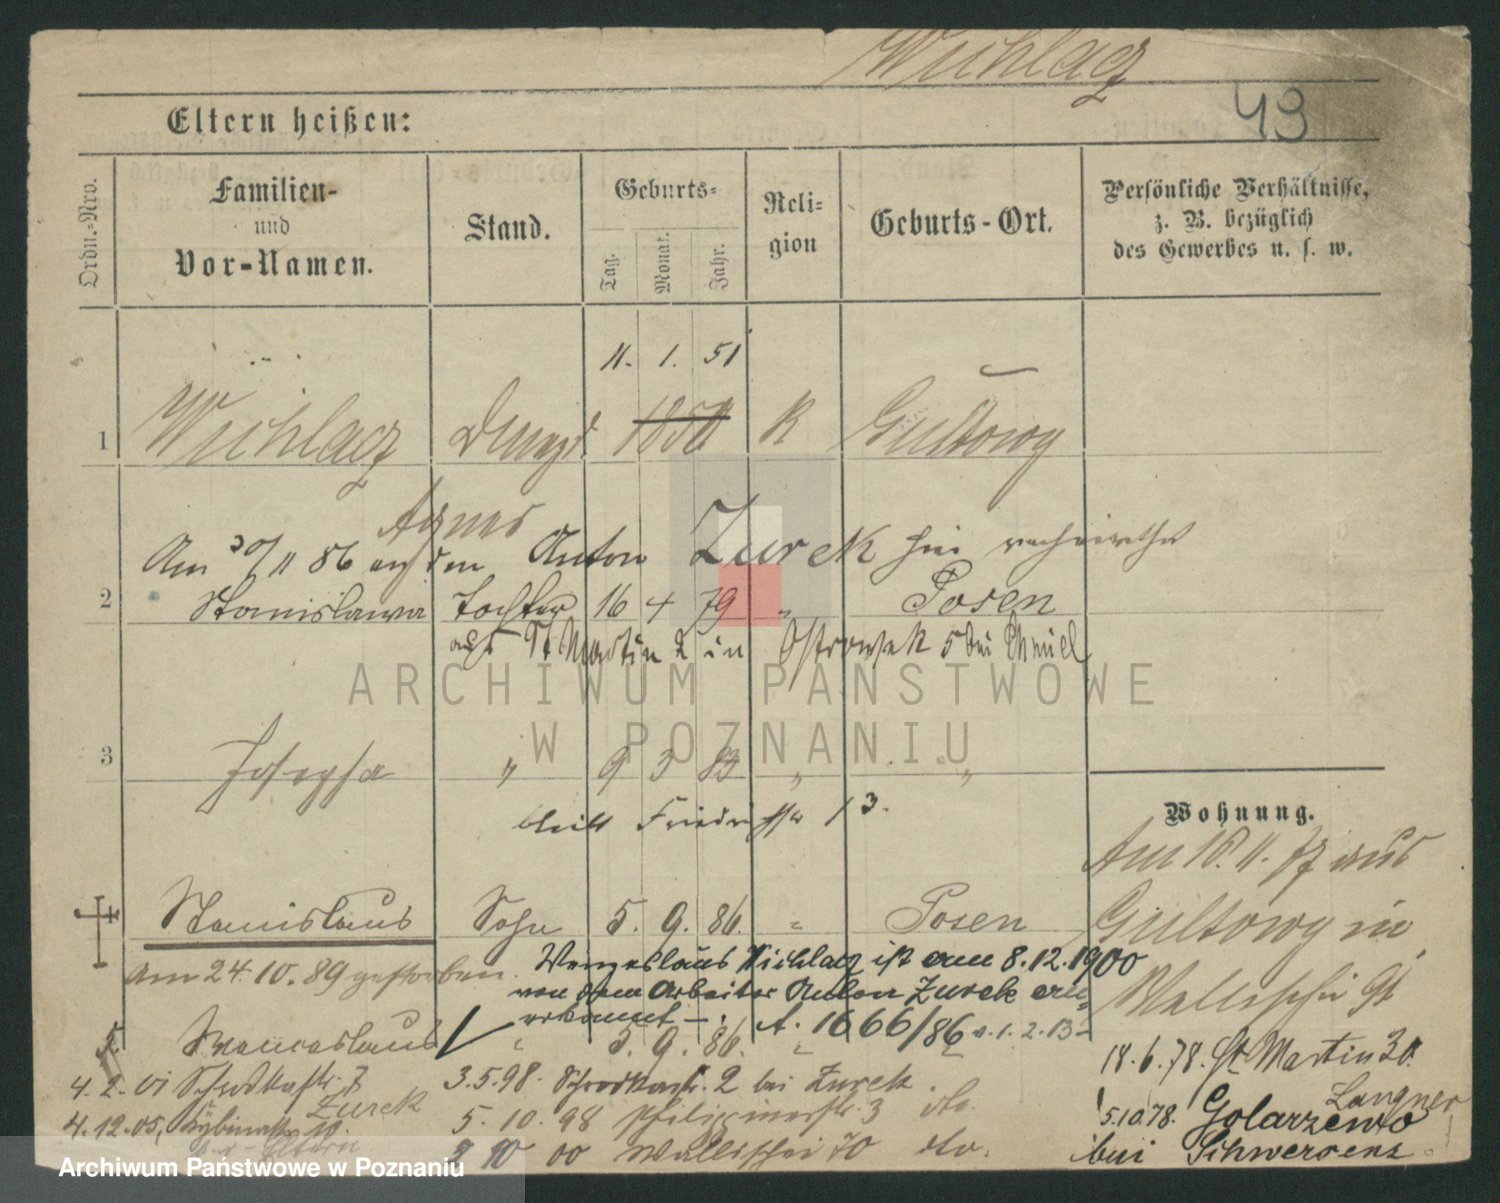 Wichlacz
43
Eltern heißen:
Ordn.-Nro.
Familien-
und
Vor-Namen.
Stand.
Geburts-
Tag.
Monat.
Jahr.
Reli-
gion
Geburts-Ort.
Persönliche Verhältnisse,
z. B. bezüglich
des Gewerbes u. s. w.
11. 1. 51
1 Wichlacz 1850 K Gultowy
Agnes
Am 30/11 86 an den Anton Zurek hier verheirathet
2 Stanislawa Tochter 16 4 79 " Posen
aus St Martin 2 in Ostrowek 5 bei Chmiel
ARCHIWUM PAŃSTWOWE
W POZNANIU
3 Josepha " 9 3 83 " "
bleibt Friedrichstr 13.
Wohnung.
Am 16.11.77 aus
Gultowy in
Wallischei 91
4 Stanislaus Sohn 5. 9. 86. " Posen
am 24.10.89 gestorben.
Wenzeslaus Wichlacz ist am 8.12.1900
von dem Arbeiter Anton Zurek an-
erkannt
A. 1666/86 v. 1.2.13
5. Wenceslaus " 5. 9. 86. " "
18.6.78. St. Martin 30.
4.2.01 Schrodkastr. 7
Zurek
3.5.98. Schrodkastr. 2 bei Zurek.
Langner
5.10.78. Golarzewo
bei Schwersenz
4.12.05.
5.10.98 Philippinerstr. 3 dto.
2 10 00 Wallischei 70 dto.
Archiwum Państwowe w Poznaniu